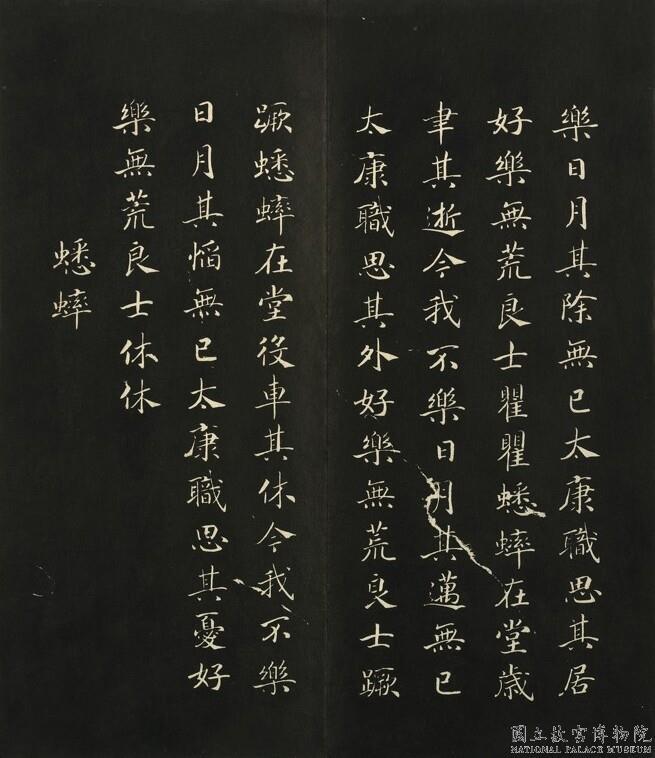 樂日月其除無已太康職思其居
好樂無荒良士瞿瞿蟋蟀在堂歲
聿其逝今我不樂日月其邁無已
太康職思其外好樂無荒良士蹶
蹶蟋蟀在堂役車其休今我不樂
日月其慆無已太康職思其憂好
樂無荒良士休休
蟋蟀
國立故宮博物院
NATIONAL PALACE MUSEUM